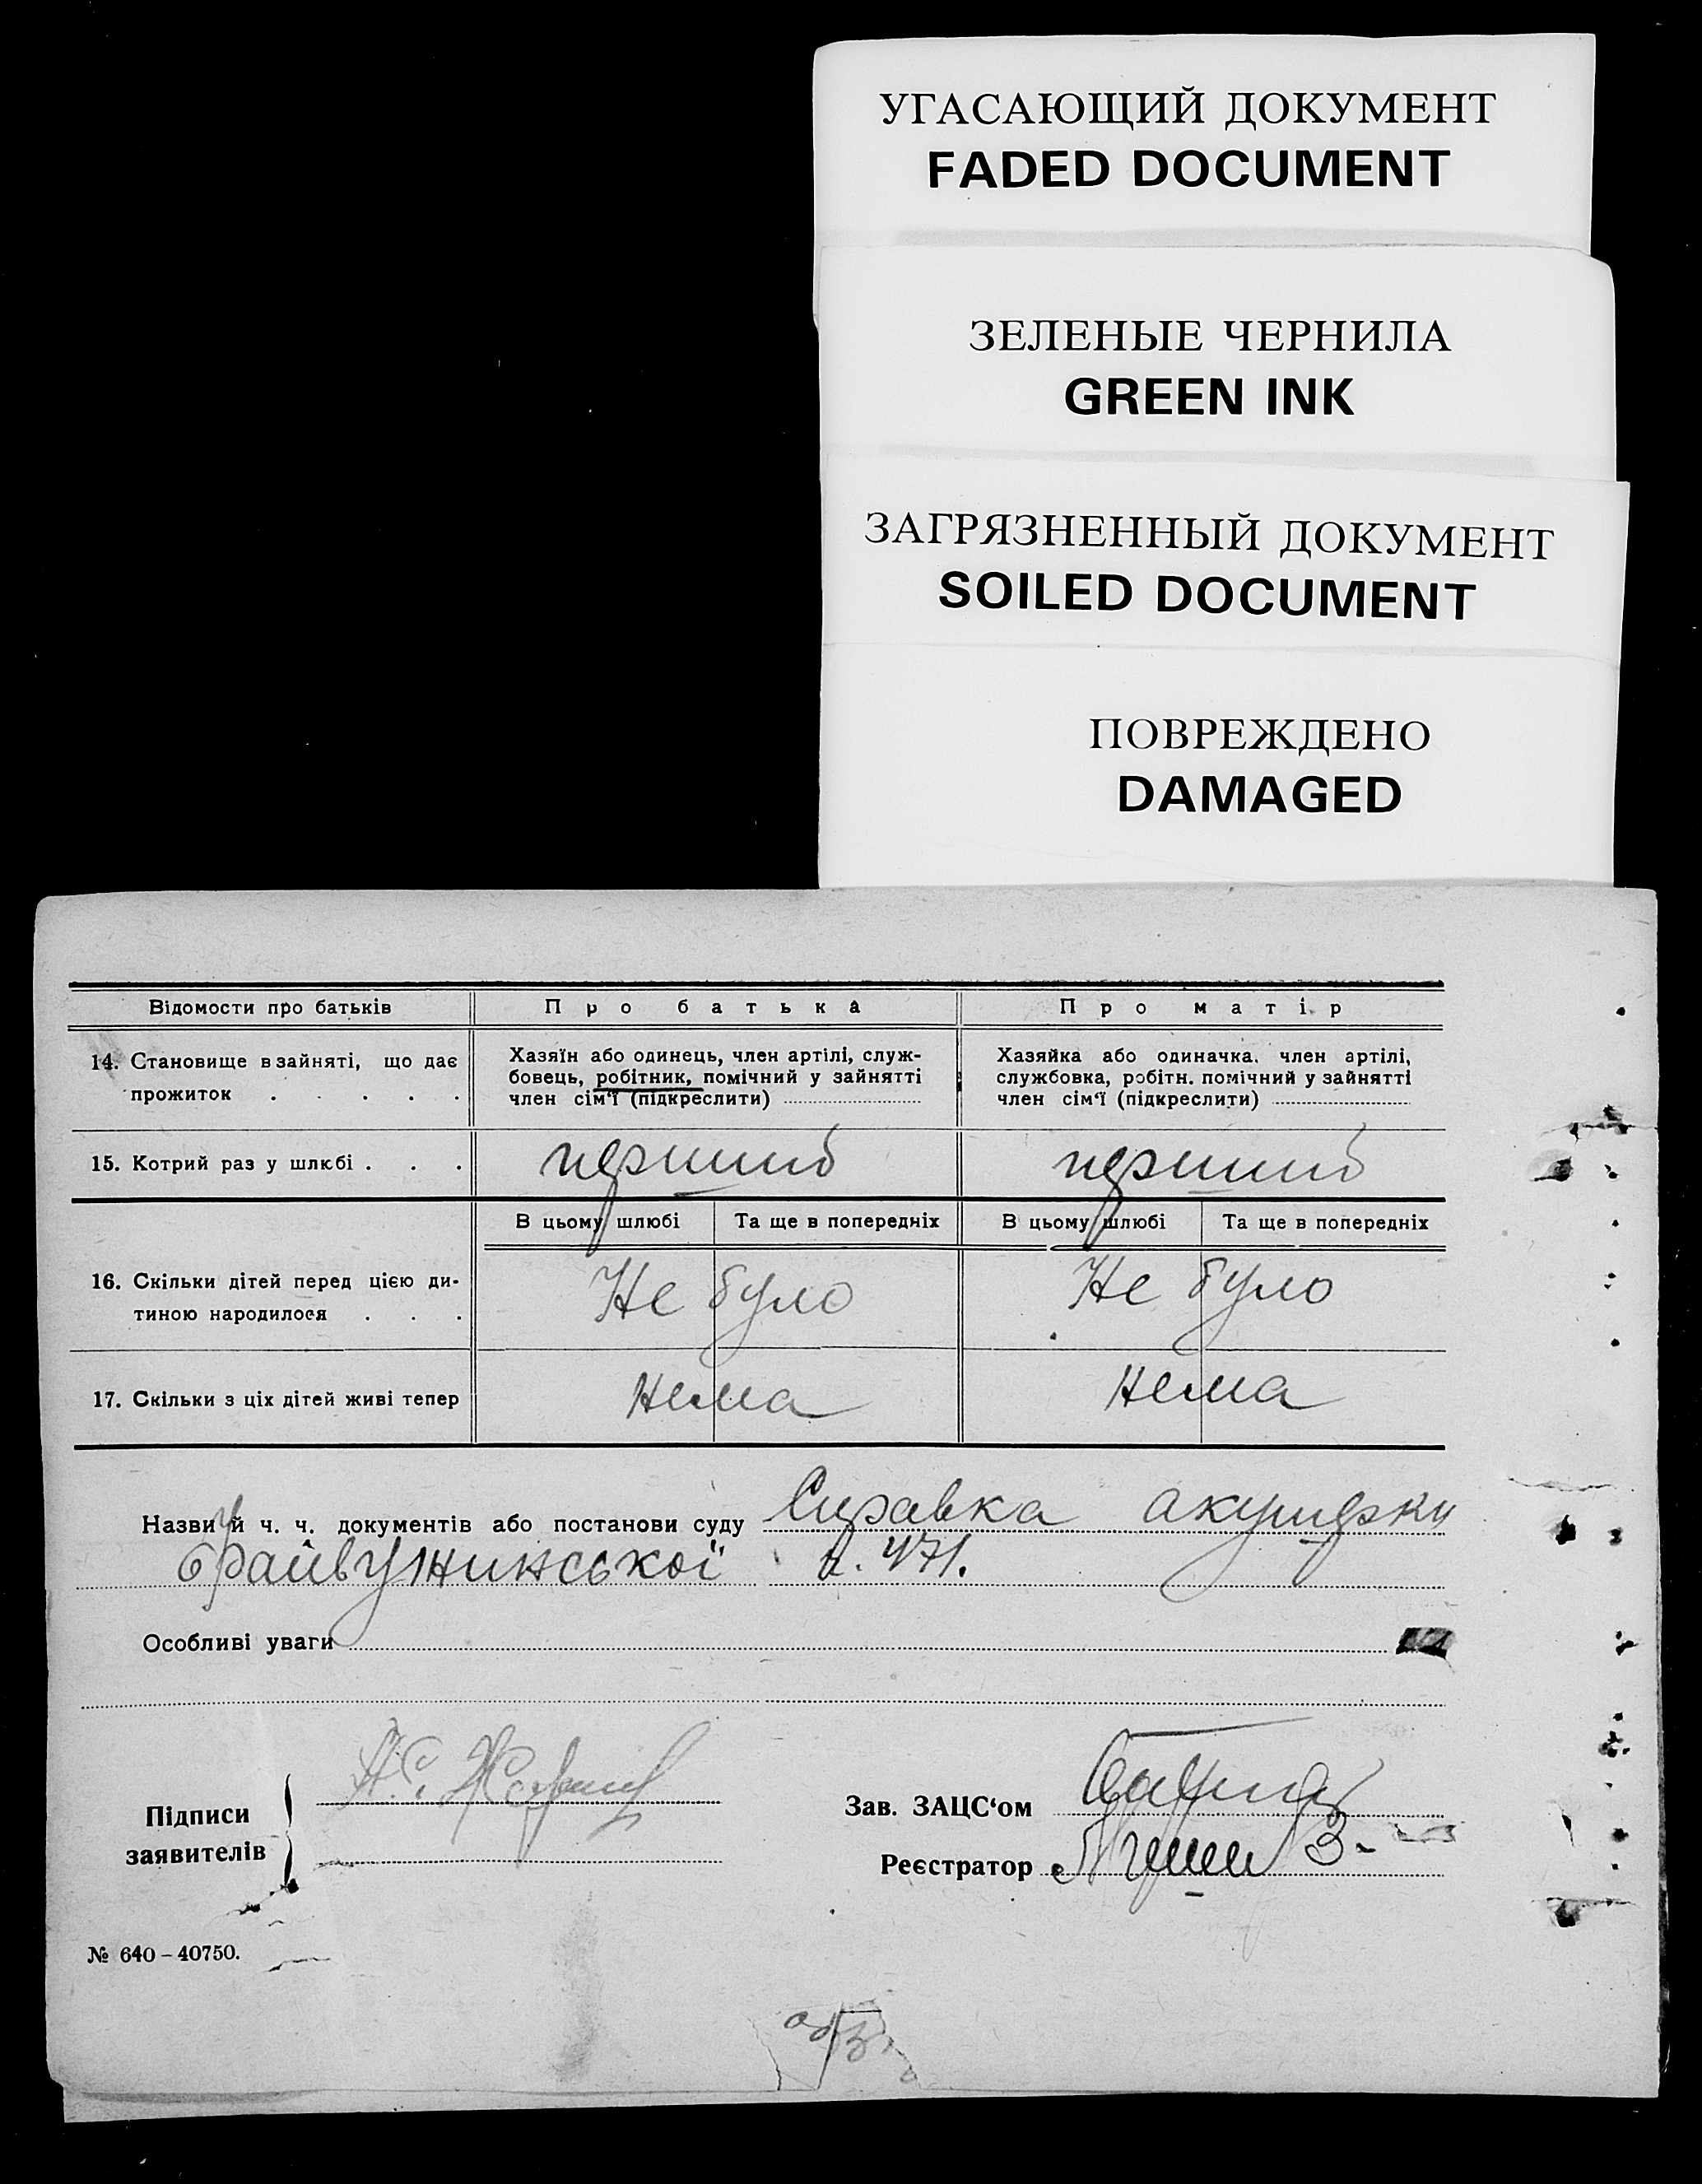 УГАСАЮЩИЙ ДОКУМЕНТ
FADED DOCUMENT
ЗЕЛЕНЫЕ ЧЕРНИЛА
GREEN INK
ЗАГРЯЗНЕННЫЙ ДОКУМЕНТ
SOILED DOCUMENT
ПОВРЕЖДЕНО
DAMAGED
Відомости про батьків Про батька Про матір
14. Становище в зайняті, що дає
прожиток . . . . .
Хазяїн або одинець, член артілі, служ-
бовець, робітник, помічний у зайнятті
член сім‘ї (підкреслити)
Хазяйка або одиначка, член артілі,
службовка, робітн. помічний у зайнятті
член сім‘ї (підкреслити)
15. Котрий раз у шлюбі . . . перший перший
В цьому шлюбі Та ще в попередніх В цьому шлюбі Та ще в попередніх
16. Скільки дітей перед цією ди-
тиною народилося . . .
Не було Не було
17. Скільки з ціх дітей живі тепер нема нема
Назви й ч. ч. документів або постанови суду Справка акушерки
ч. 471.
Особливі уваги
Підписи
заявителів
Зав. ЗАЦС‘ом
Реєстратор
№ 640–40750.